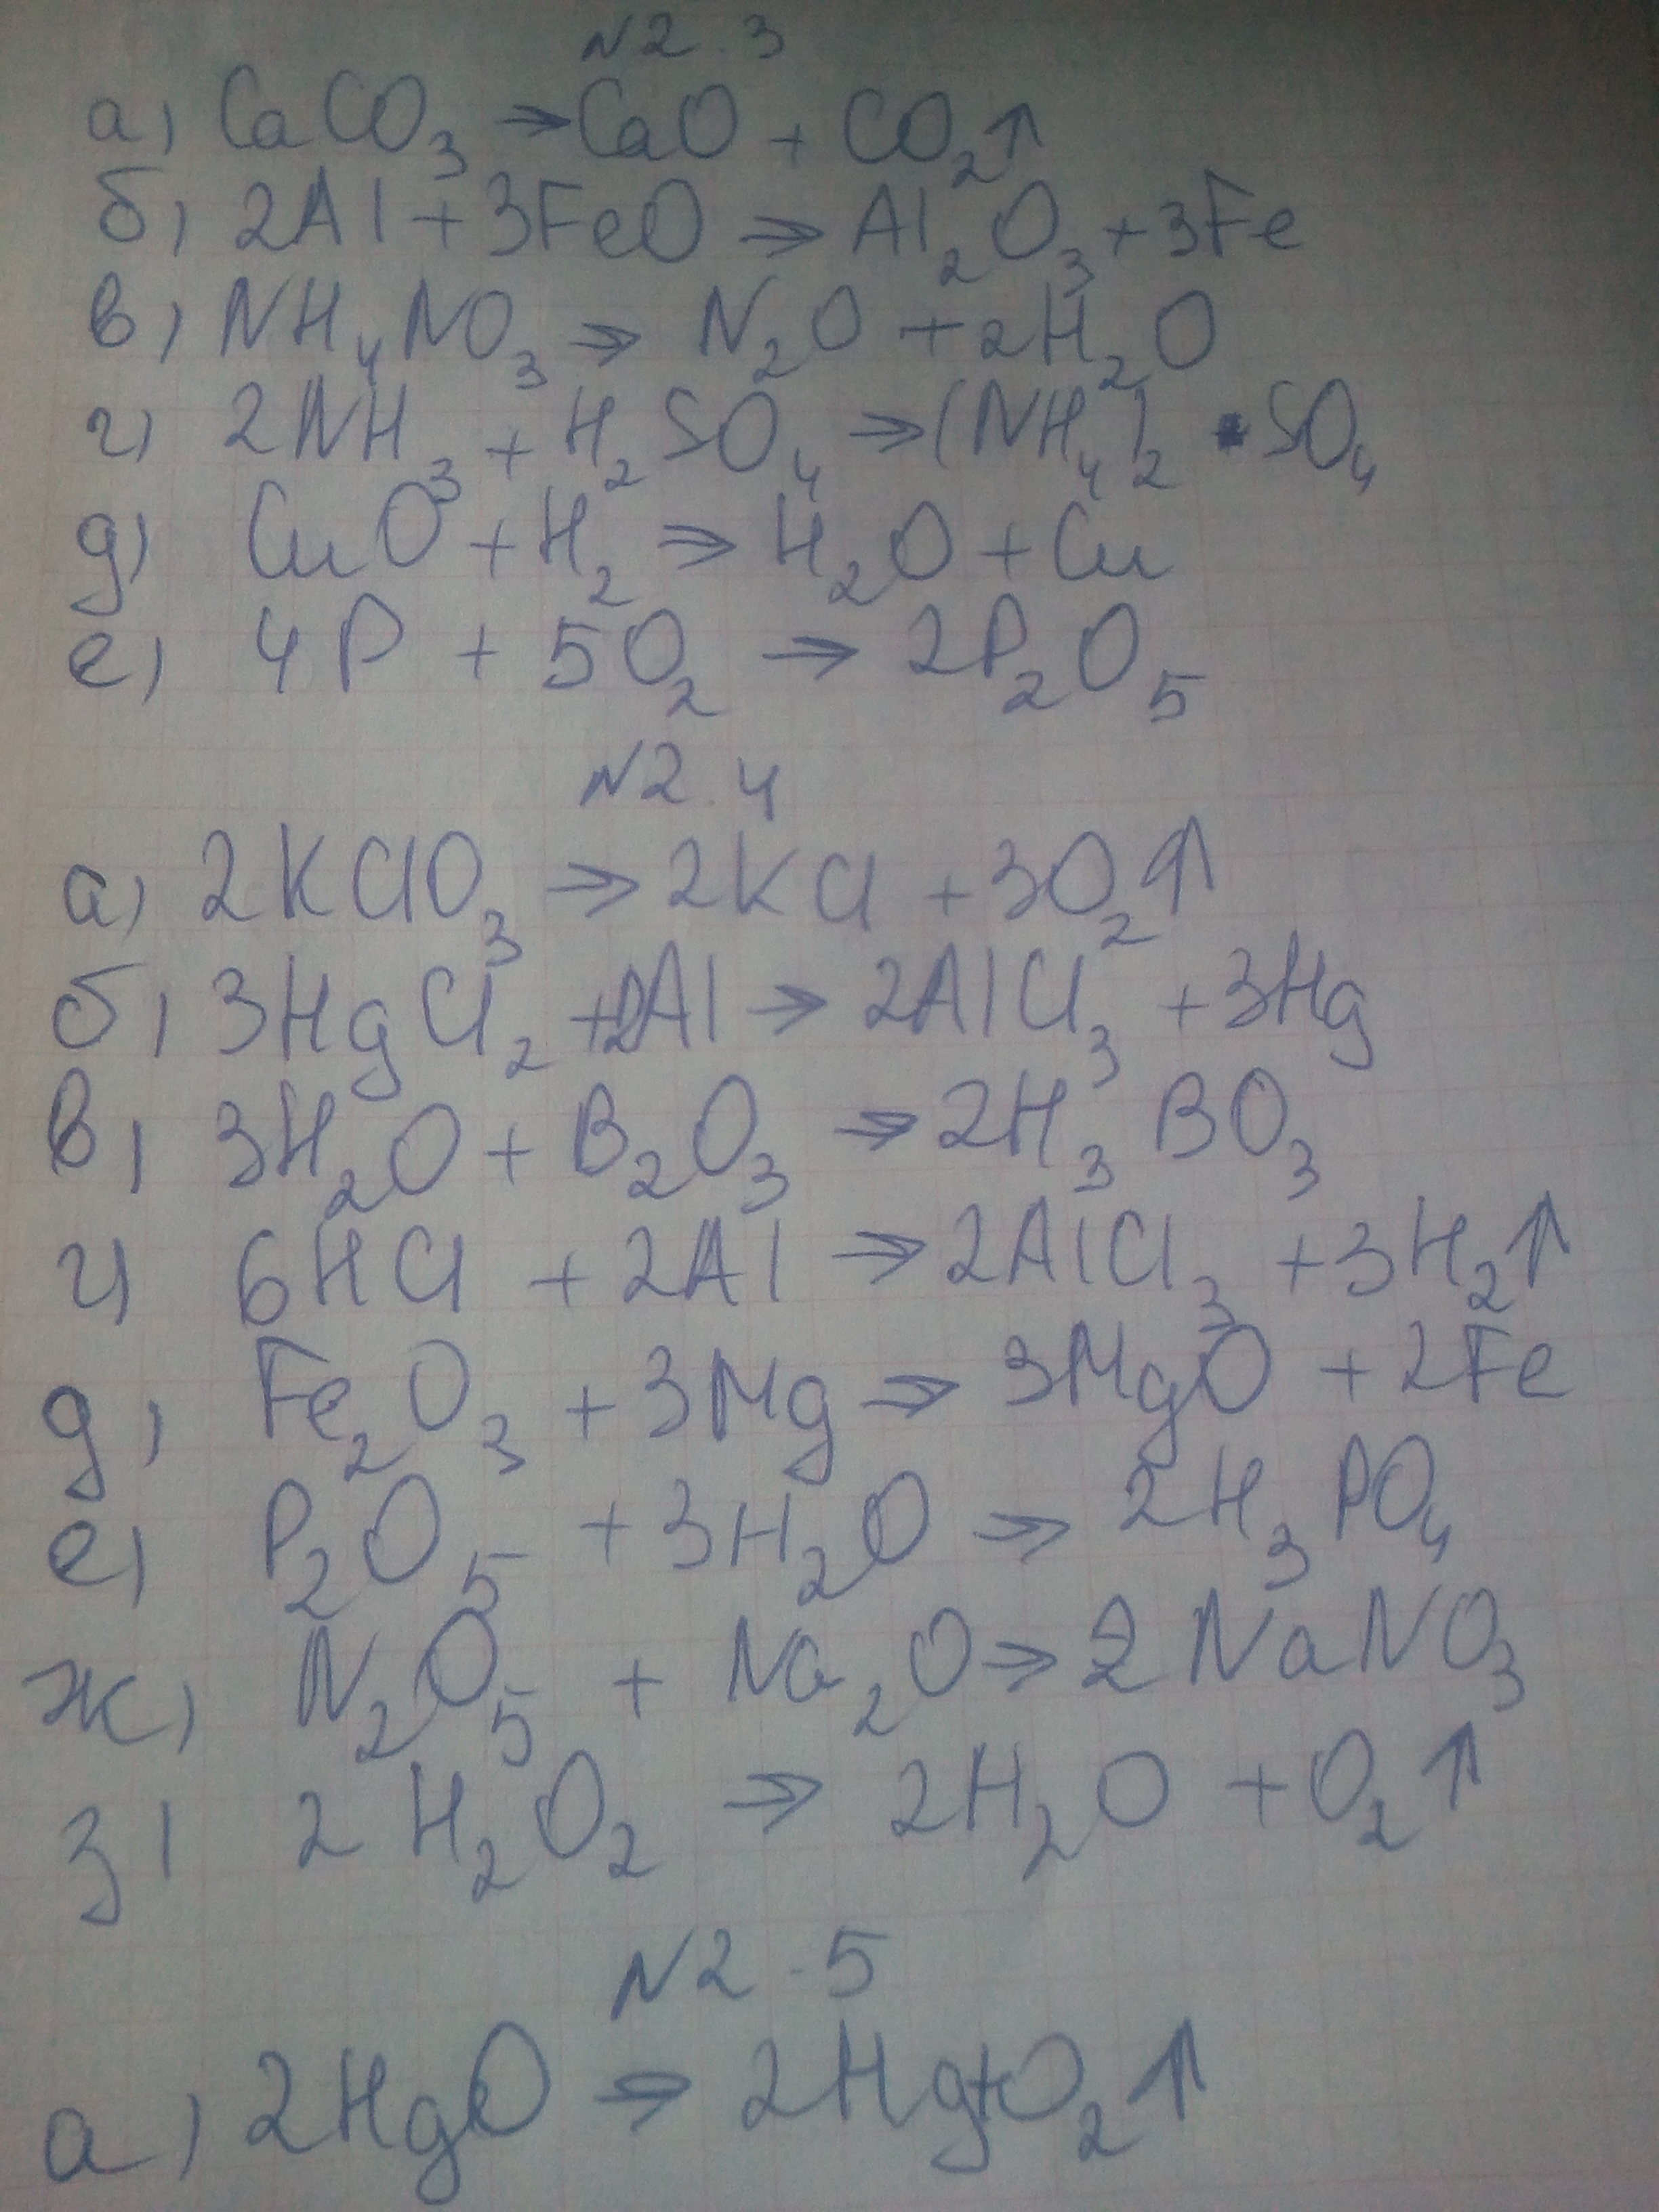 N2.3
а) CaCO₃ → CaO + CO₂↑
б) 2Al + 3FeO → Al₂O₃ + 3Fe
в) NH₄NO₃ → N₂O + 2H₂O
г) 2NH₃ + H₂SO₄ → (NH₄)₂ SO₄
д) CuO + H₂ → H₂O + Cu
е) 4P + 5O₂ → 2P₂O₅
N2.4
а) 2KClO₃ → 2KCl + 3O₂↑
б) 3HgCl₂ + 2Al → 2AlCl₃ + 3Hg
в) 3H₂O + B₂O₃ → 2H₃BO₃
г) 6HCl + 2Al → 2AlCl₃ + 3H₂↑
д) Fe₂O₃ + 3Mg → 3MgO + 2Fe
е) P₂O₅ + 3H₂O → 2H₃PO₄
ж) N₂O₅ + Na₂O → 2NaNO₃
з) 2H₂O₂ → 2H₂O + O₂↑
N2.5
а) 2HgO → 2Hg + O₂↑